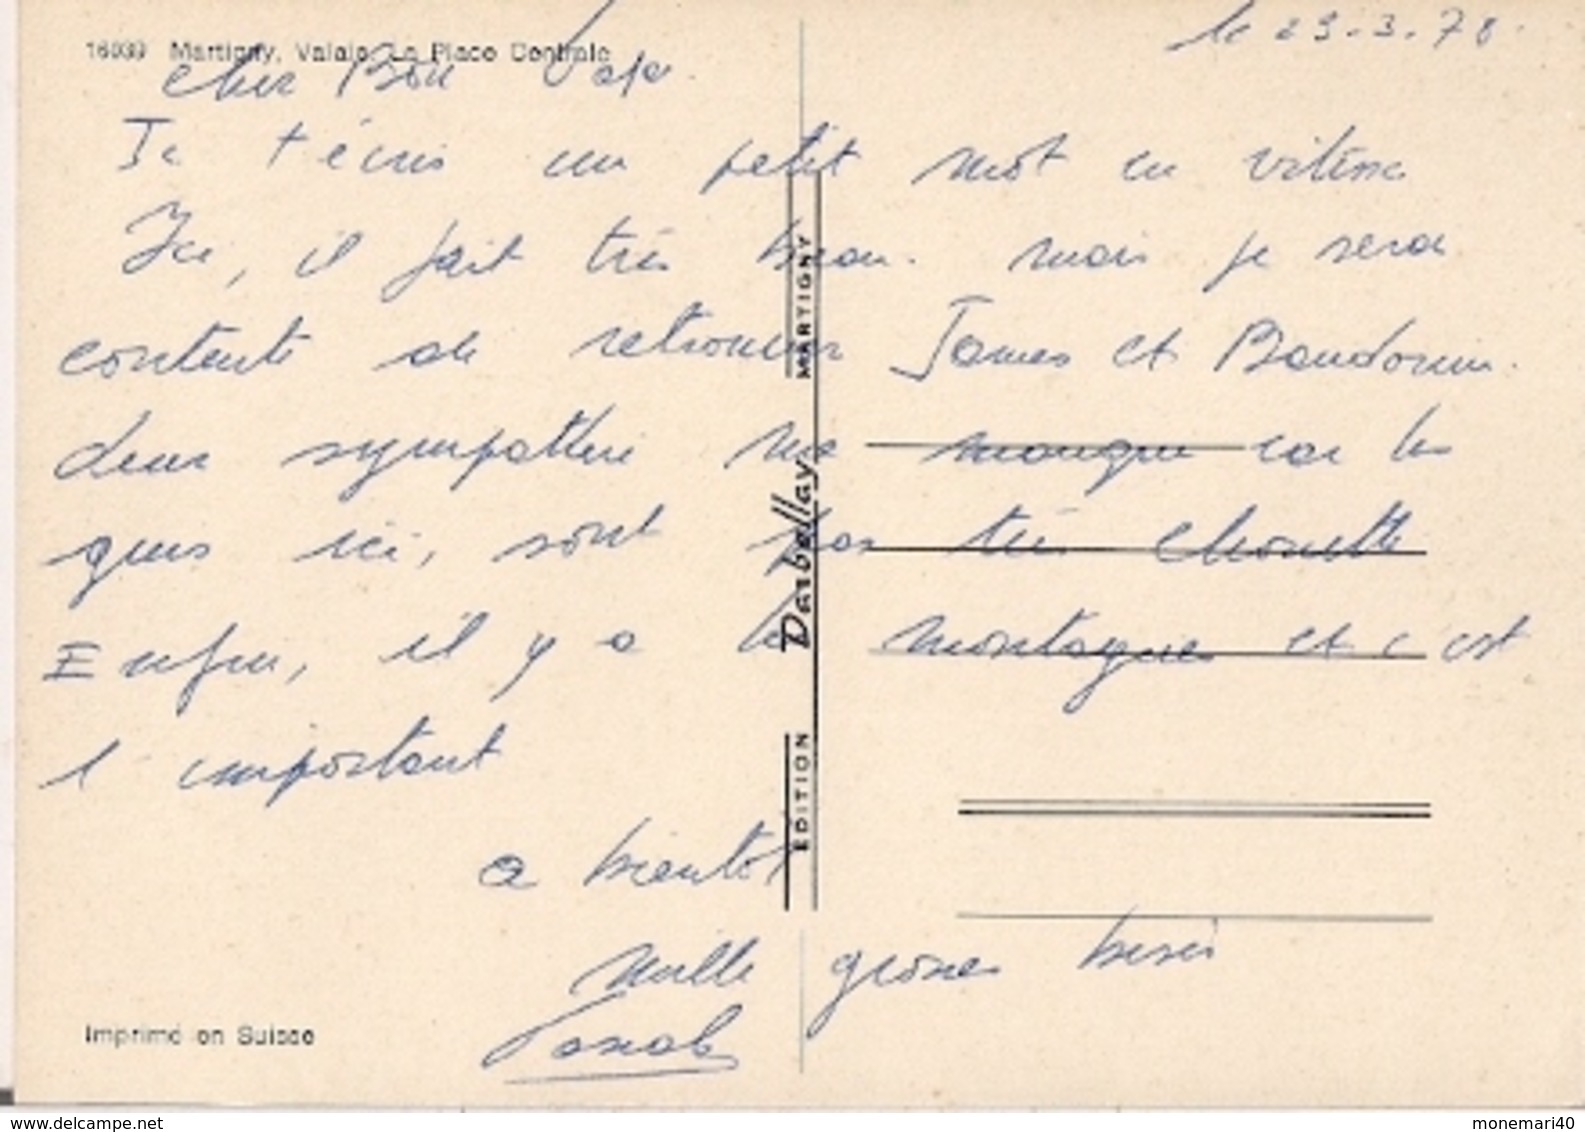 le 29.3.78.
16039 Martigny, Valais. La Place Centrale
cher Bon Papa
Je t'écris un petit mot en vitesse
Ici, il fait très beau. mais je serai
contente de retrouver James et Baudouin.
leur sympathie me manque car les
gens ici, sont pas très chouette
Enfin, il y a les montagnes et c'est
l'important
a bientot
mille grosses bises
Imprimé en Suisse
EDITION Darbellay MARTIGNY
www.delcampe.net
monemari40